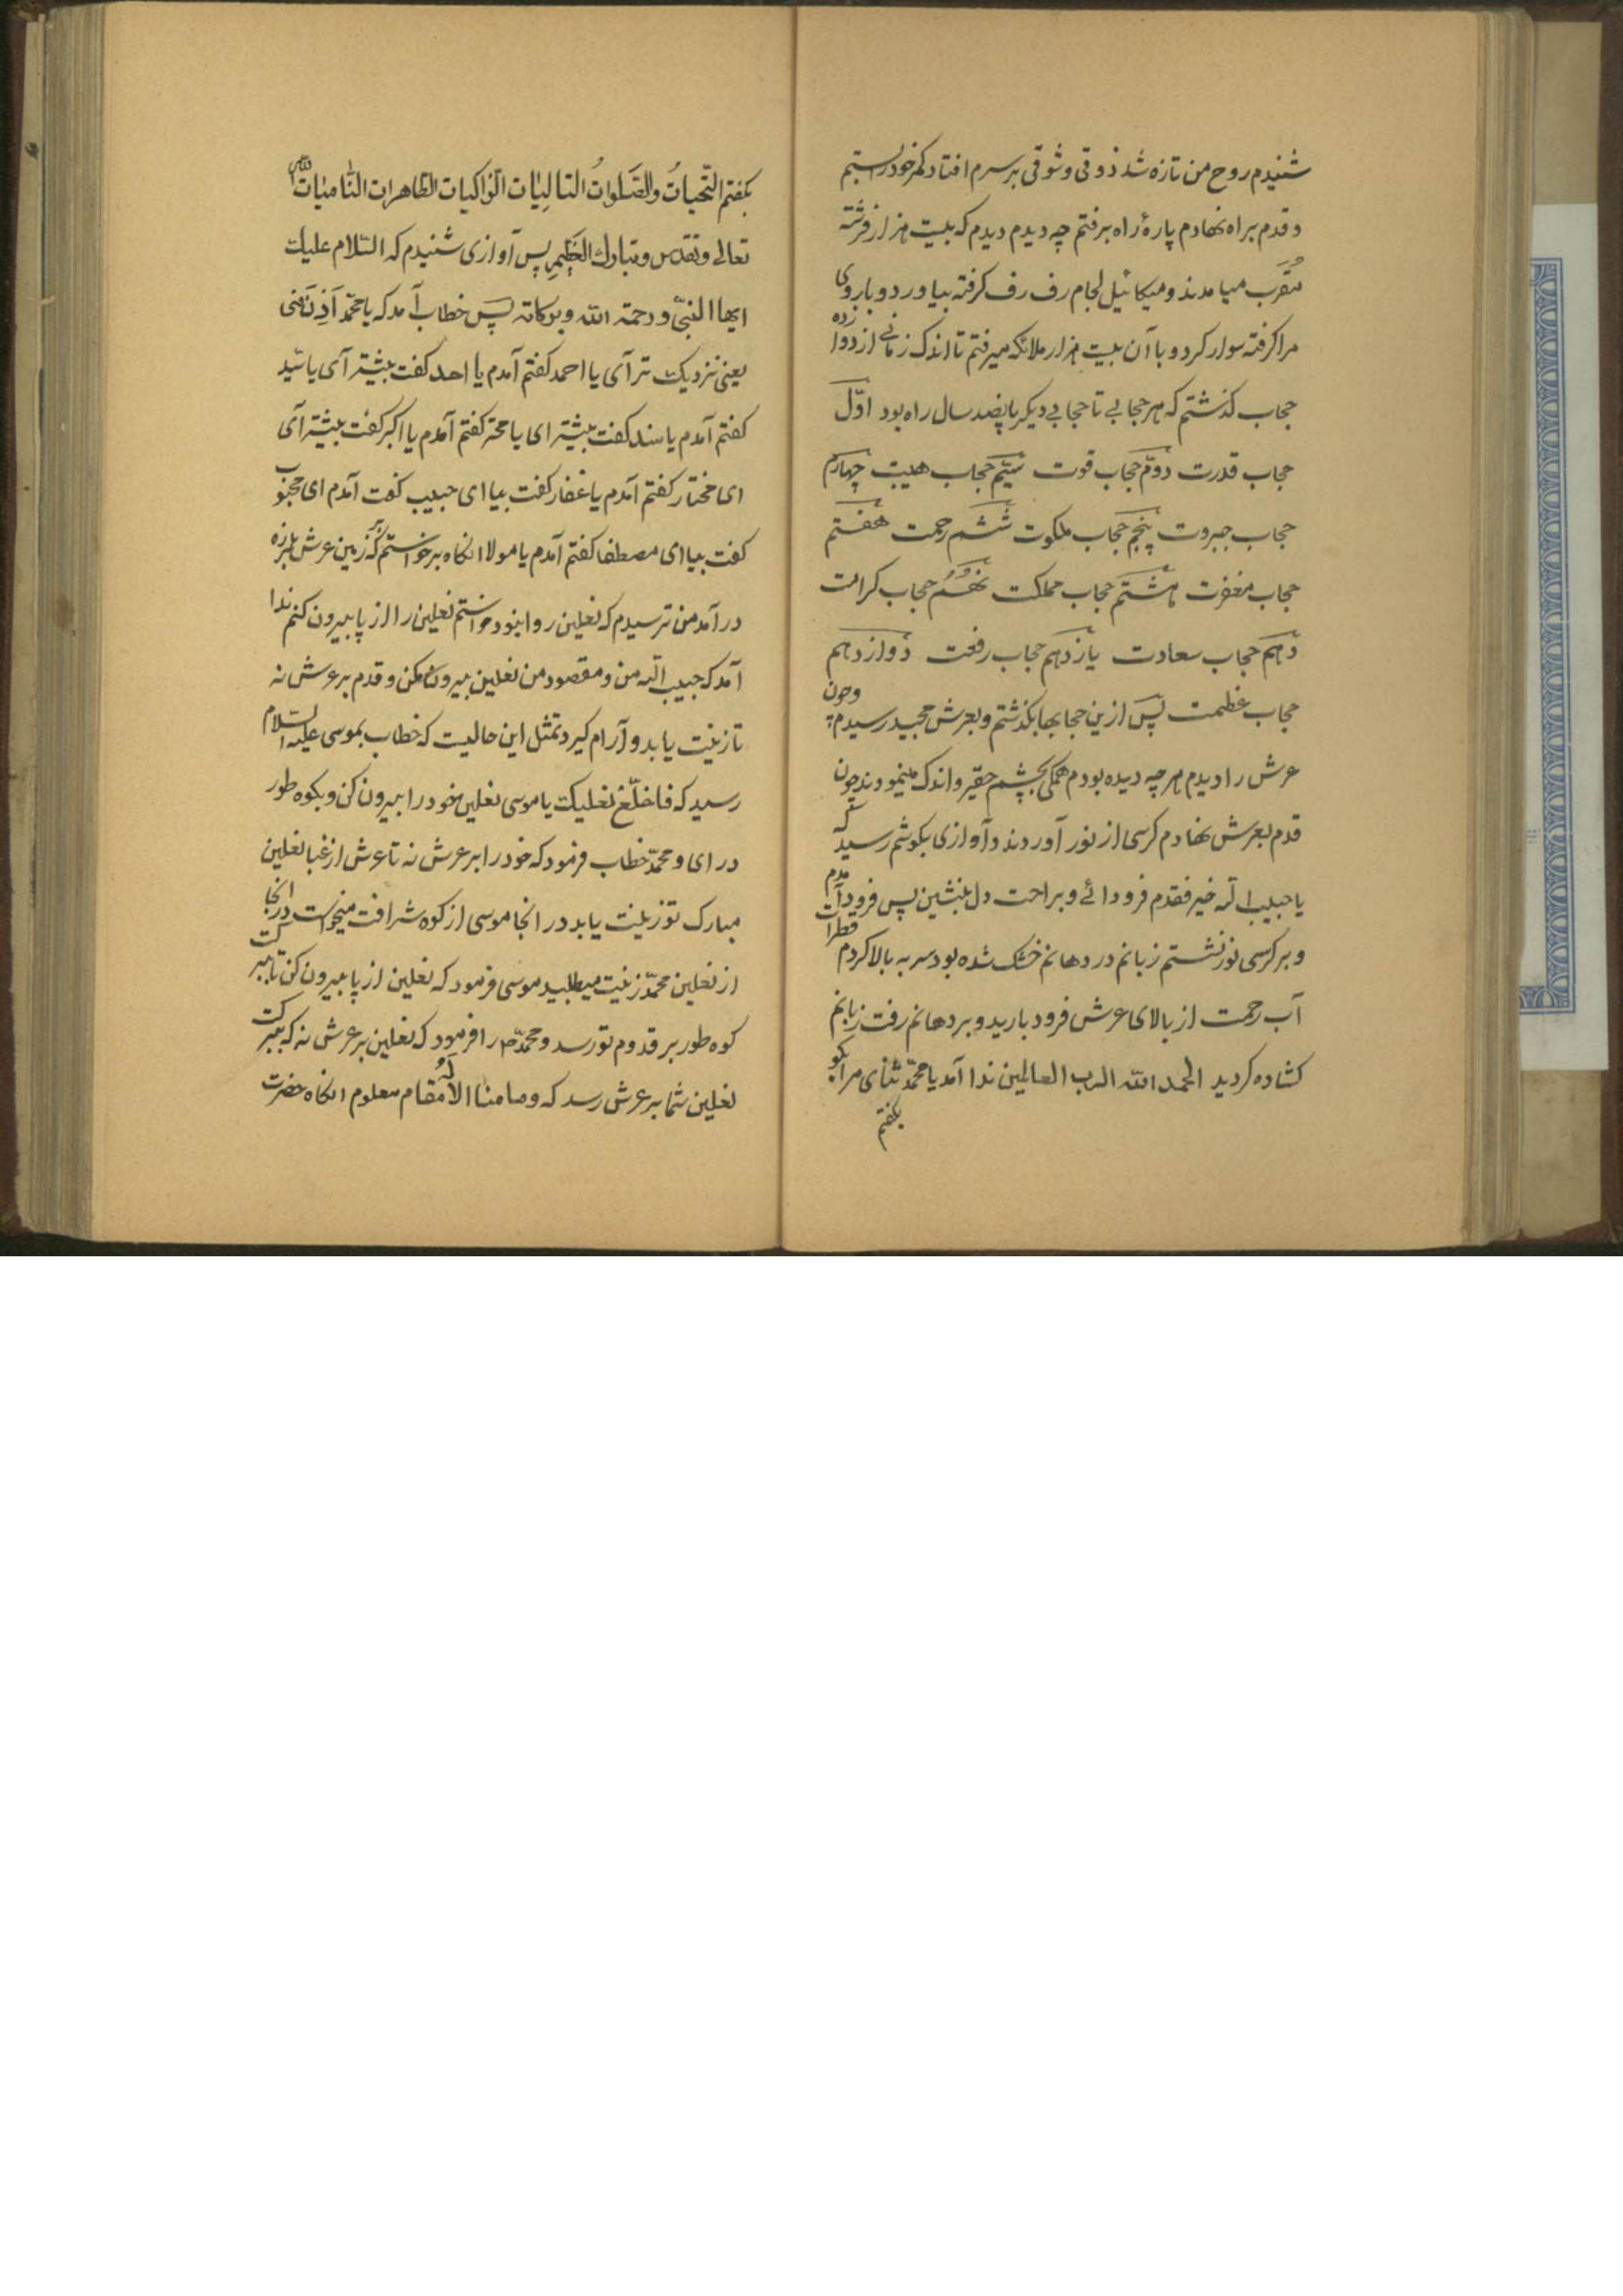 شنیدم روح من تازه شد ذوقی و شوقی بر سرم افتاد کمر خود را بستم
و قدم براه نهادم پارۀ راه برفتم چه دیدم دیدم که بیست هزار فرشته
مُقرَب میامدند و میکائیل لجام رف رف کرفته بیاورد و بازوی
مرا کرفته سوار کرد و با آن بیست هزار ملائکه میرفتم تا اندک زمانی از دوازده
حجاب کذشتم که هر حجابی تا حجابی دیکر پانصد سال راه بود اوّل
حجاب قدرت دوّم حجاب قوت سیّم حجاب هیبت چهارم
حجاب جبروت پنجم حجاب ملکوت ششم رحمت هفتم
حجاب مغفرت هشتم حجاب مملکت نهُم حجاب کرامت
دهم حجاب سعادت یازدهم حجاب رفعت دوازدهم
حجاب عظمت پس ازین حجابها بکذشتم و بعرش مجید رسیدم و چون
عرش را دیدم هر چه دیده بودم همکی بچشم حقیر و اندک مینمودند چون
قدم بعرش نهادم کرسی از نور آوردند و آوازی بکوشم رسید که
یا حبیب الله خیر فقدم فرود ائے و براحت دل بنشین پس فرود آمدم
و بر کرسی نور نشستم زبانم در دهانم خشک شده بود سر به بالا کردم قطرات
آب رحمت از بالای عرش فرود بارید و بر دهانم رفت زبانم
کشاده کردید الحمد الله الرب العالمین ندا آمد یا محمّد ثنای مرا بکو
بکفتم
بکفتم التّحیاتُ والصَّلواتُ التالِیَات الزاکیات الطّاهرات النّامیَات للّه
تعالے و تقدس و تبارک العَظِیمِ پس آوازی شنیدم که السّلام علیک
ایها النبیّ و رحمة الله و برکاته پس خطاب آمد که یا محمّد اَدِن مَنی
یعنی نزدیک تر آی یا احمد کفتم آمدم یا احد کفت بیشتر آی یا سَید
کفتم آمدم یا سند کفت بیشتر ای یا محمّد کفتم آمدم یا اکبر کفت بیشتر آی
ای مختار کفتم آمدم یا غفار کفت بیا ای حبیب کفت آمدم ای محبوب
کفت بیا ای مصطفا کفتم آمدم یا مولا انکاه برخواستم که زمین عرش بلرزه
در آمد من ترسیدم که نعلین روا نبود خواستم نعلین را از پا بیرون کنم ندا
آمد که حبیب الله من و مقصود من نعلین بیرون مکن و قدم بر عرش نه
تا زینت یابد و آرام کیرد تمثل این حالیت که خطاب بموسی علیه السّلام
رسید که فاخلّع نعلیک یا موسی نعلین خود را بیرون کن و بکوه طور
در ای و محمّد خطاب فرمود که خود را بر عرش نه تا عرش از غبا نعلین
مبارک تو زینت یابد در انجا موسی از کوه شرافت میخواست در انجا
از نعلین محمّد زینت میطلبید موسی فرمود که نعلین از پا بیرون کن تا ببرکت
کوه طور بر قدوم تو رسد و محمّد ص را فرمود که نعلین بر عرش نه که ببرکت
نعلین شما بر عرش رسد که وما منا الا لَهُ مقام معلوم انکاه حضرت